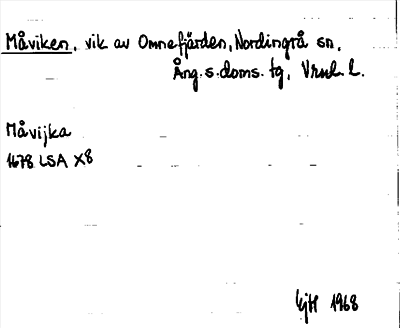 Måviken, vik av Omnefjärden, Nordingrå sn,
Ång. s. doms. tg, Vrnl. L.
Måvijka
1678 LSA X8
EjH 1968